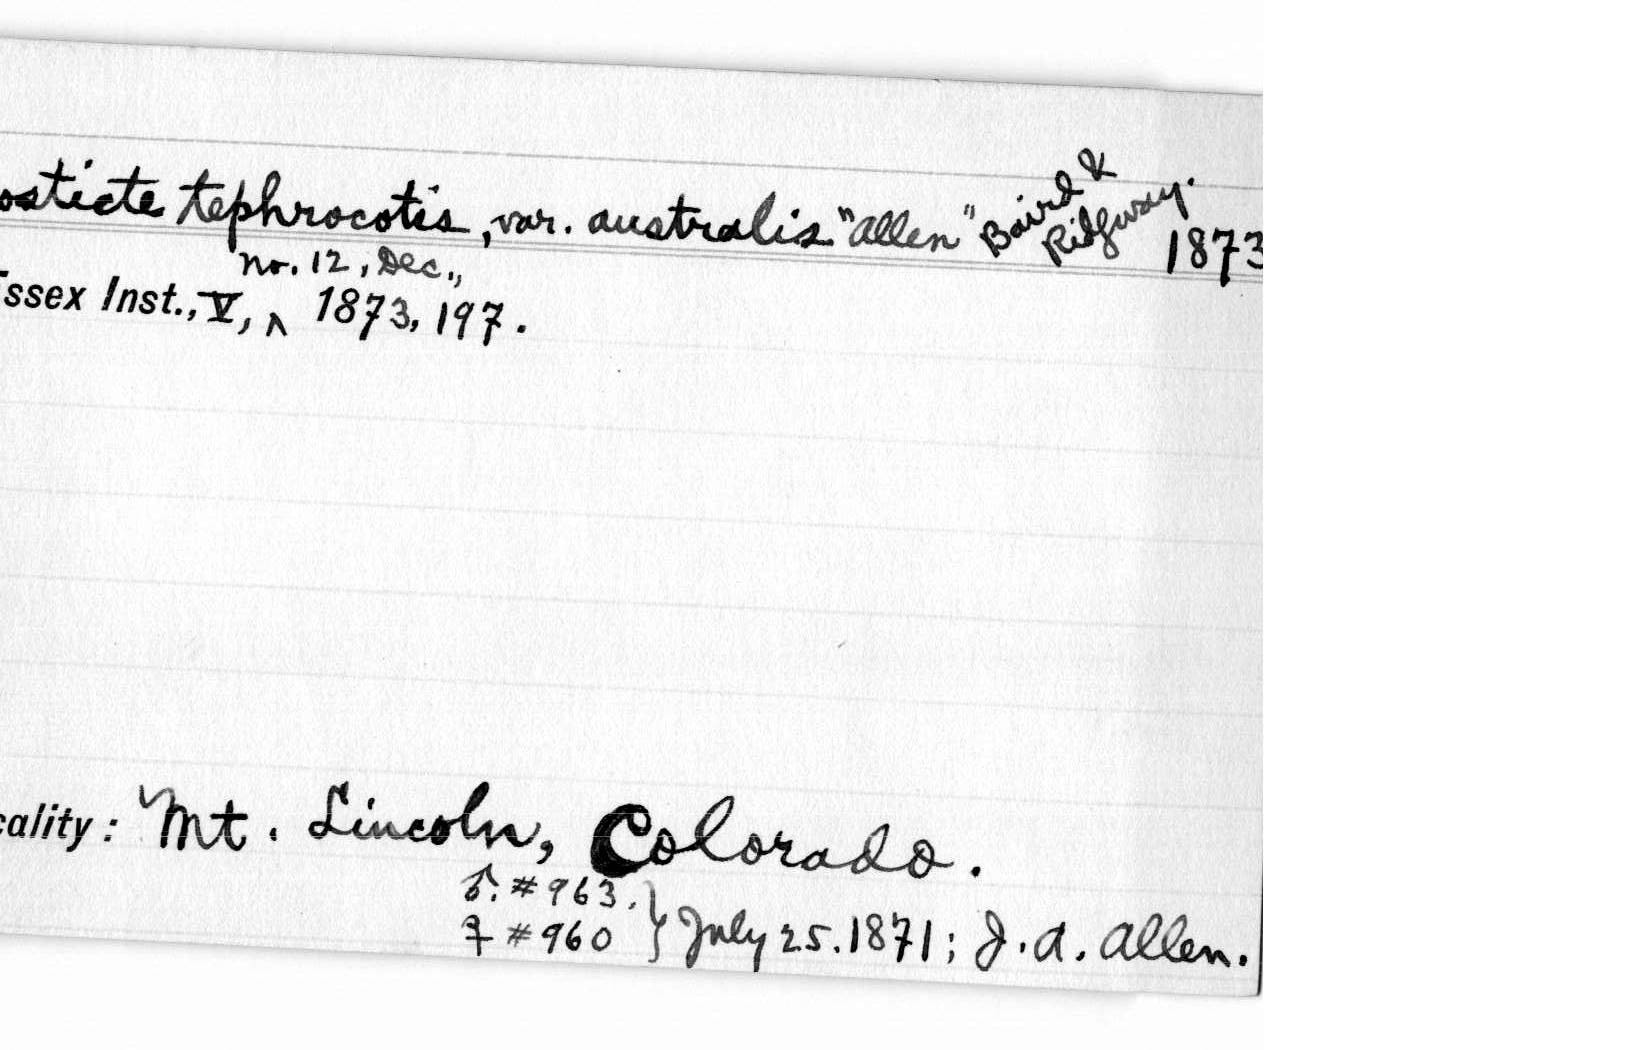 osticte tephrocotis, var. australis "Allen" Baird & Ridgway. 1873
no. 12, Dec.,
Essex Inst., V, ^ 1873, 197.
cality: Mt. Lincoln, Colorado.
♂. #963.
♀ #960 } July 25. 1871; J. A. Allen.